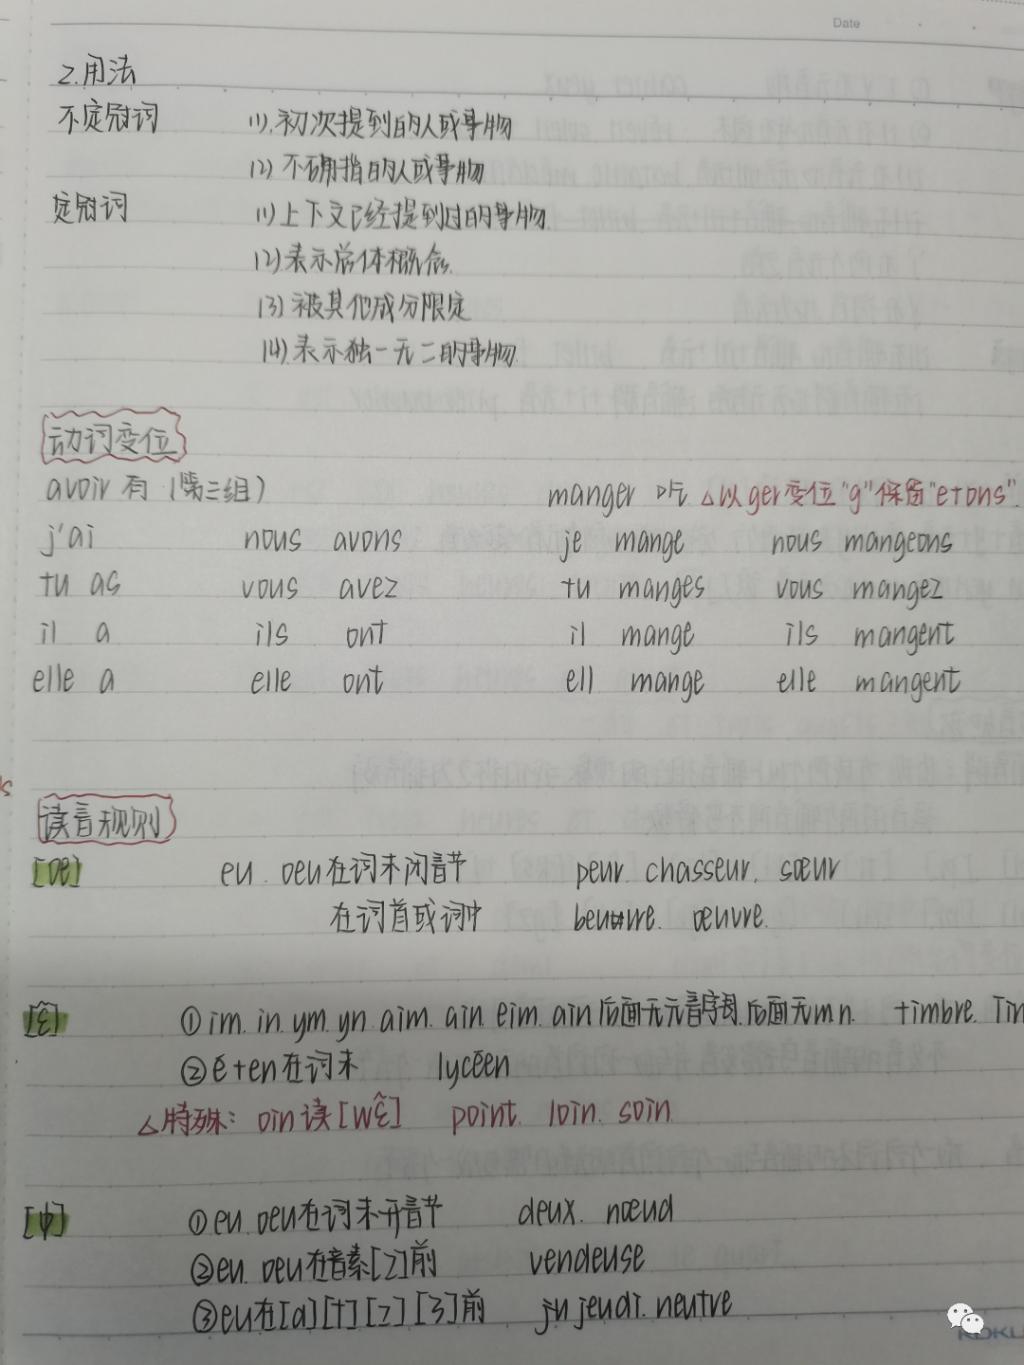 Date
2.用法
不定冠词 (1).初次提到的人或事物
(2) 不确指的人或事物
定冠词 (1)上下文已经提到过的事物.
(2)表示总体概念.
(3)被其他成分限定
(4).表示独一无二的事物.
动词变位
avoir 有 (第三组) manger 吃 △以ger变位"g"保留"e+ons".
j'ai nous avons je mange nous mangeons
tu as vous avez tu manges vous mangez
il a ils ont il mange ils mangent
elle a elle ont ell mange elle mangent
读音规则
[œ] eu. oeu在词末闭音节 peur. chasseur. sœur
在词首或词中 oeuvre.
[ɛ̂] ①im. in. ym. yn. aim. ain. eim. ain后面无元音字母.后面无m n. timbre. Tin
②é+en在词末 lycéen
△特殊: oin读[wɛ̂] point. loin. soin
[ф] ①eu. oeu在词末开音节 deux. nœud
②eu. oeu在音素[z]前 vendeuse
③eu在[d][t][z][ʒ]前 jeudi. neutre